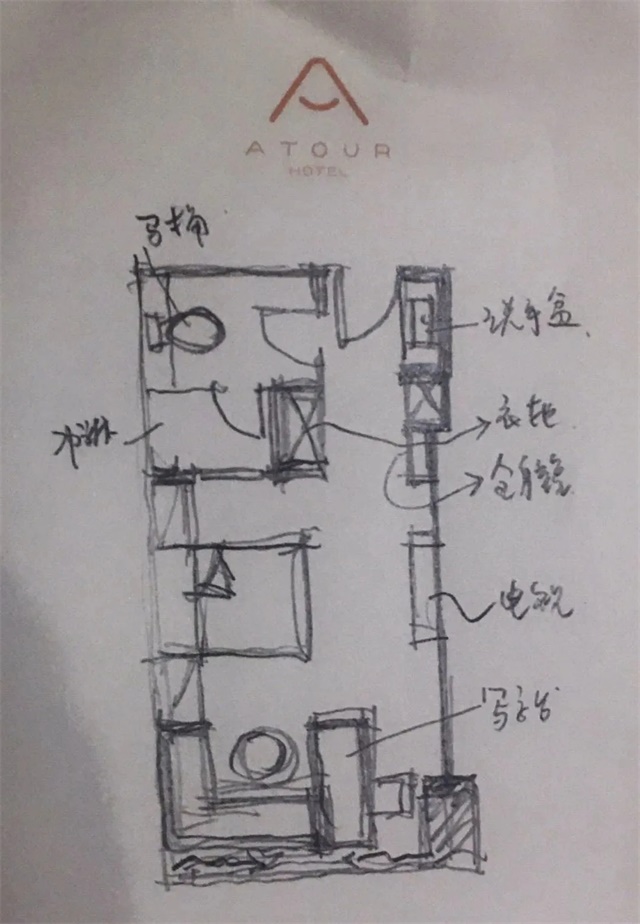 ATOUR
HOTEL
马桶
洗手盆
衣柜
淋浴
全身镜
电视
写字台